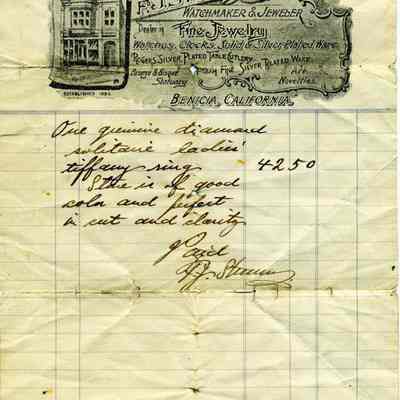 WATCHMAKER & JEWELER
Dealer in Fine Jewelry
Watches, Clocks, Solid & Silver Plated Ware.
Rogers Silver Plated Table Cutlery,
Bronze & Bisque Statuary
Fine Silver Plated Ware
Art Novelties.
ESTABLISHED
BENICIA, CALIFORNIA.
One genuine diamond
solitaire ladies'
tiffany ring 42 50
Stone is of good
color and perfect
in cut and clarity
Paid